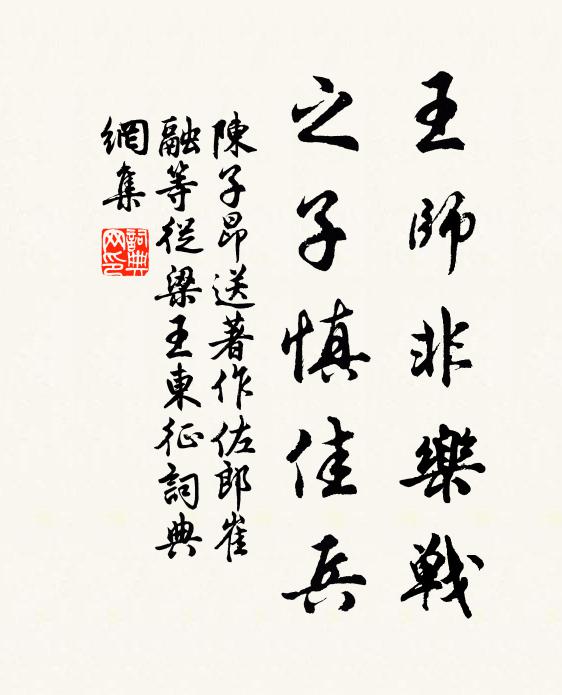 王師非樂戰
之子慎佳兵
陳子昂送著作佐郎崔
融等從梁王東征詞典
網集
詞典
网印